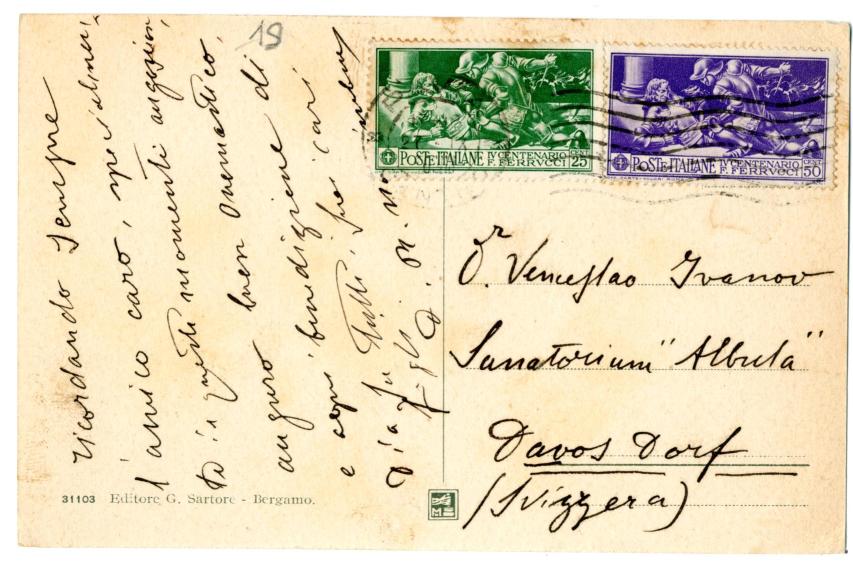 19
ricordando sempre
l'amico caro, specialmen-
te in questi momenti angosciosi,
auguro buon onomastico,
e ogni benedizione di
Dio su tutti i suoi cari
POSTE ITALIANE IV CENTENARIO F. FERRVCCI CENT 25
POSTE ITALIANE IV CENTENARIO F. FERRVCCI CENT 50
Dr. Venceslao Ivanov
Sanatorium "Albula"
Davos Dorf
(Svizzera)
31103 Editore G. Sartore - Bergamo.